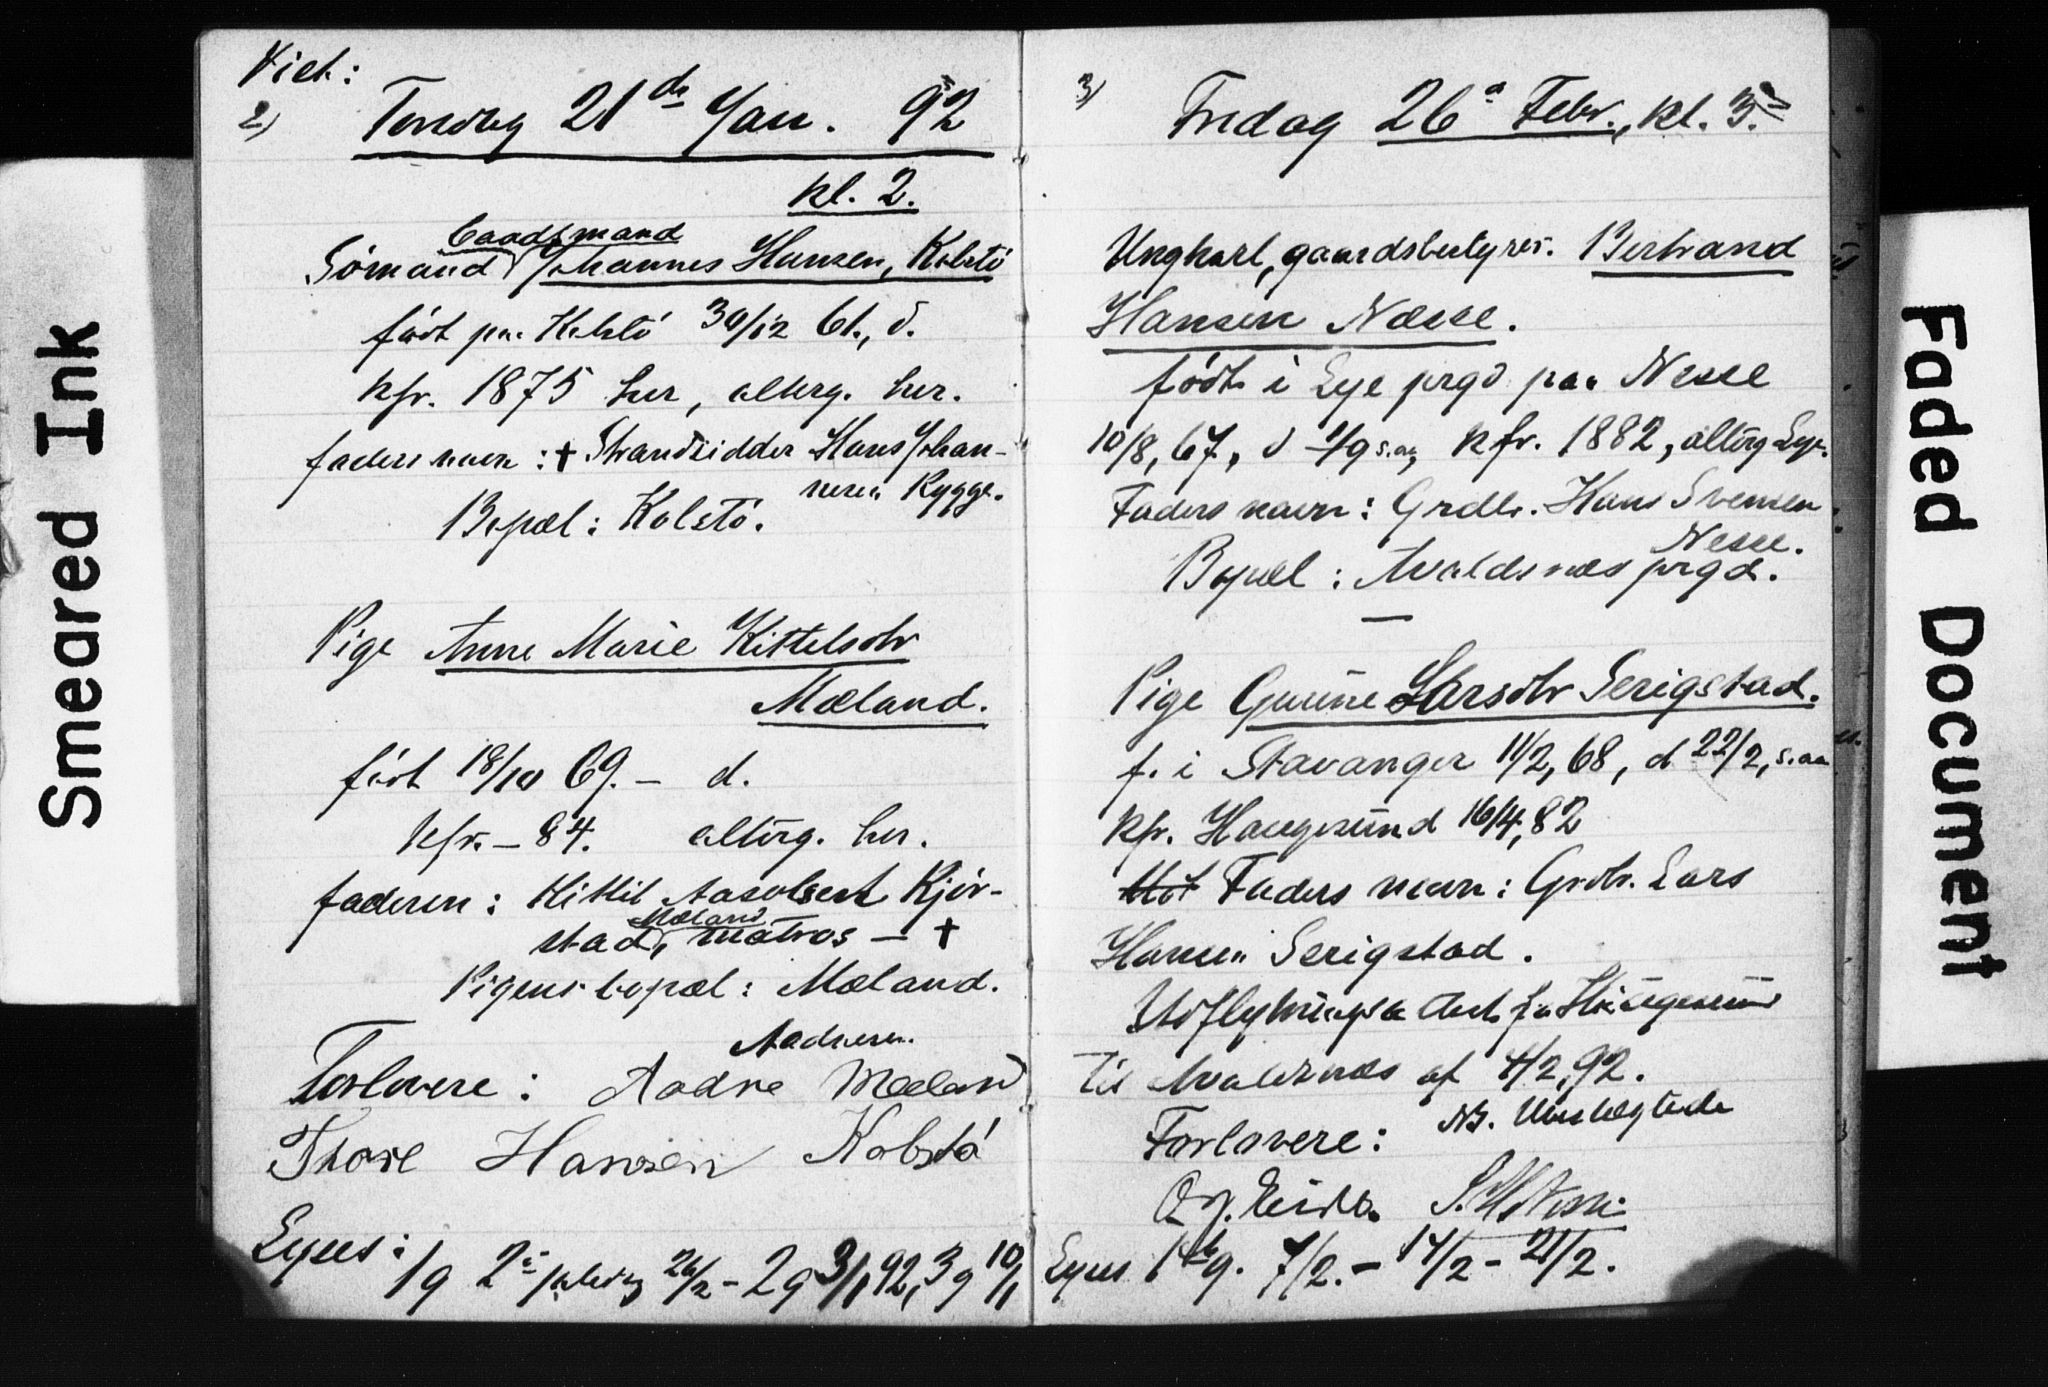 Smeared Ink
Viet:
2) Torsdag 21de Jan. 92
kl. 2.
Baadsmand
Sømand Johannes Hansen, Kolstø
født paa Kolstø 30/12 61., d.
kfr. 1875 her, altérg. her.
faders navn: † Strandsidder Hans Johan-
nesen Rygge.
Bopæl: Kolstø.
Pige Anne Marie Kittelsdtr
Mæland.
født 18/10 69. — d.
kfr. — 84. altérg. her.
faderen: Kittil Aasolsen Kjør-
Mæland
stad, matros — †
Pigens bopæl: Mæland.
Aadnesen.
Forlovere: Aadne Mæland
Thore Hansen Kolstø
Lyses: 1g 2den juledag 26/12 - 2g 3/1 92, 3g 10/1
3) Fredag 26de Febr., kl. 3.
Ungkarl, gaardsbestyrer. Bertrand
Hansen Nesse.
født i Lye prgd paa Nesse
10/8, 67, d 1/9 s.aa, kfr. 1882, altérg Lye.
Faders navn: Grdbr. Hans Svensen
Nesse.
Bopæl: Avaldsnæs prgd.
—
Pige Gurine Larsdtr Serigstad.
f. i Stavanger 11/2, 68, d 22/2, s.aa
kfr. Haugesund 16/4, 82
Faders navn: Grdbr. Lars
Hansen Serigstad.
Udflytningsattest fra Haugesund
til Avaldsnæs af 4/2, 92.
NB. Ubeslægtede
Forlovere:
Lyses 1ste g. 7/2. - 14/2 - 21/2.
Faded Document